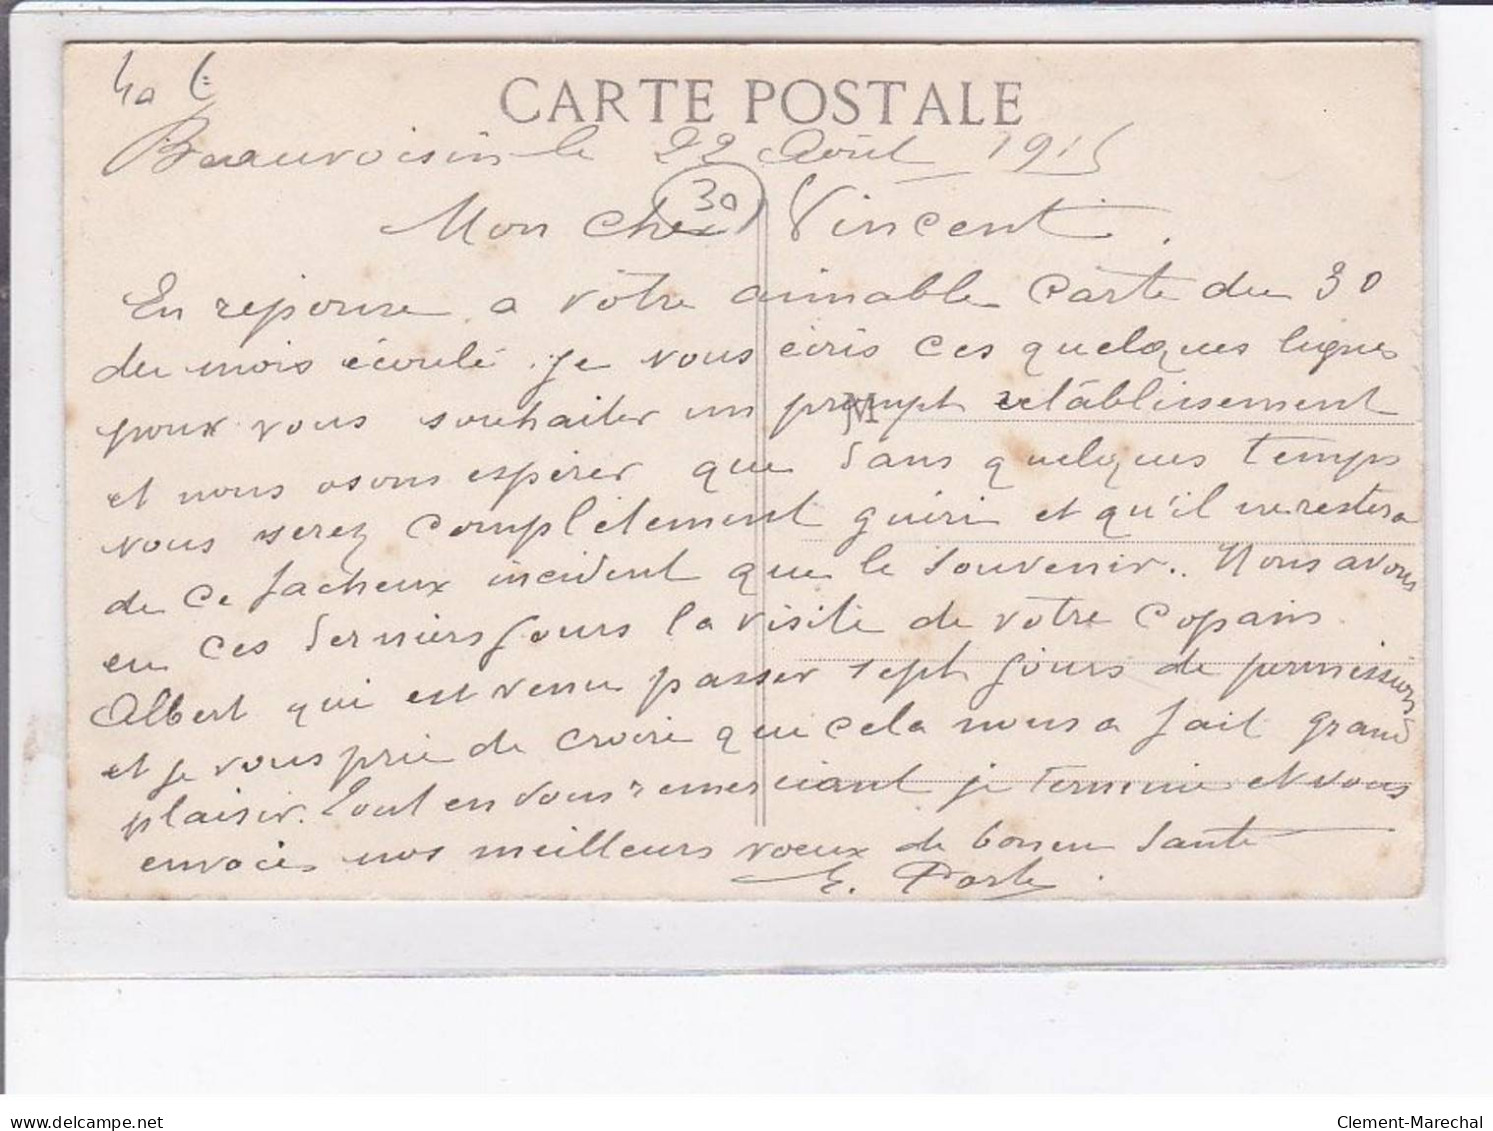 40 €
CARTE POSTALE
Beauvoisin le 22 Août 1915
30
Mon cher Vincent.
En reponse a vôtre aimable Carte du 30
du mois écoulé. Je vous écris ces quelques lignes
pour vous souhaiter un prompt retâblissement
M
et nous osons espérer que dans quelques temps
vous serez complètement guéri et qu'il ne restera
de ce facheux incident que le souvenir.. Nous avons
eu ces derniers jours la visite de votre Copain
Albert qui est venu passer sept jours de permissions
et je vous prie de croire que cela nous a fait grand
plaisir. Tout en vous remerciant je termine et vous
envoie nos meilleurs voeux de bonne santé
E. Porte.
delcampe.net
Clement-Marechal